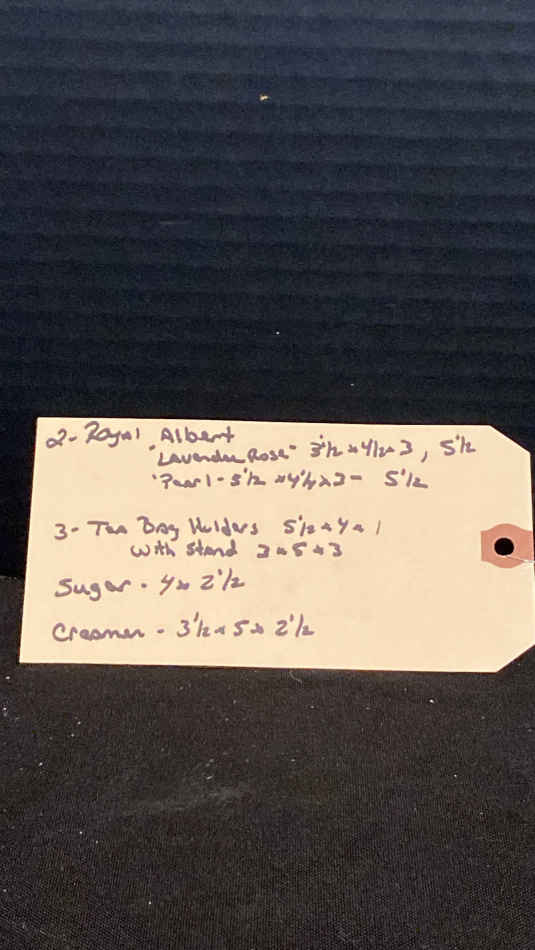 2- Royal Albert
"Lavender Rose" 3 1/2 x 4 1/2 x 3, 5 1/2
"Pearl - 3 1/2 x 4 1/4 x 3 - 5 1/2
3- Tea Bag Holders 5 1/2 x 4 x 1
with Stand 3 x 5 x 3
Sugar - 4 x 2 1/2
Creamer - 3 1/2 x 5 x 2 1/2